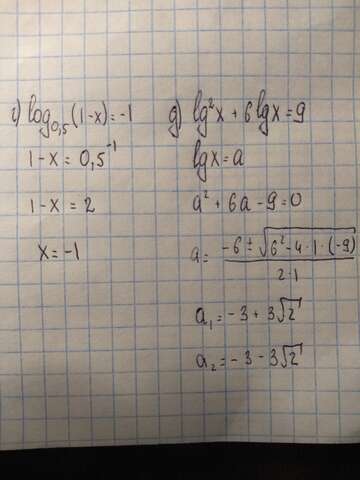 г) log₀,₅(1-x)=-1
1-x = 0,5⁻¹
1-x = 2
x=-1
д) lg²x + 6lgx=9
lgx=a
a² + 6a - 9=0
a = (-6 ± √(6² - 4·1·(-9))) / (2·1)
a₁ = -3 + 3√2
a₂ = -3 - 3√2